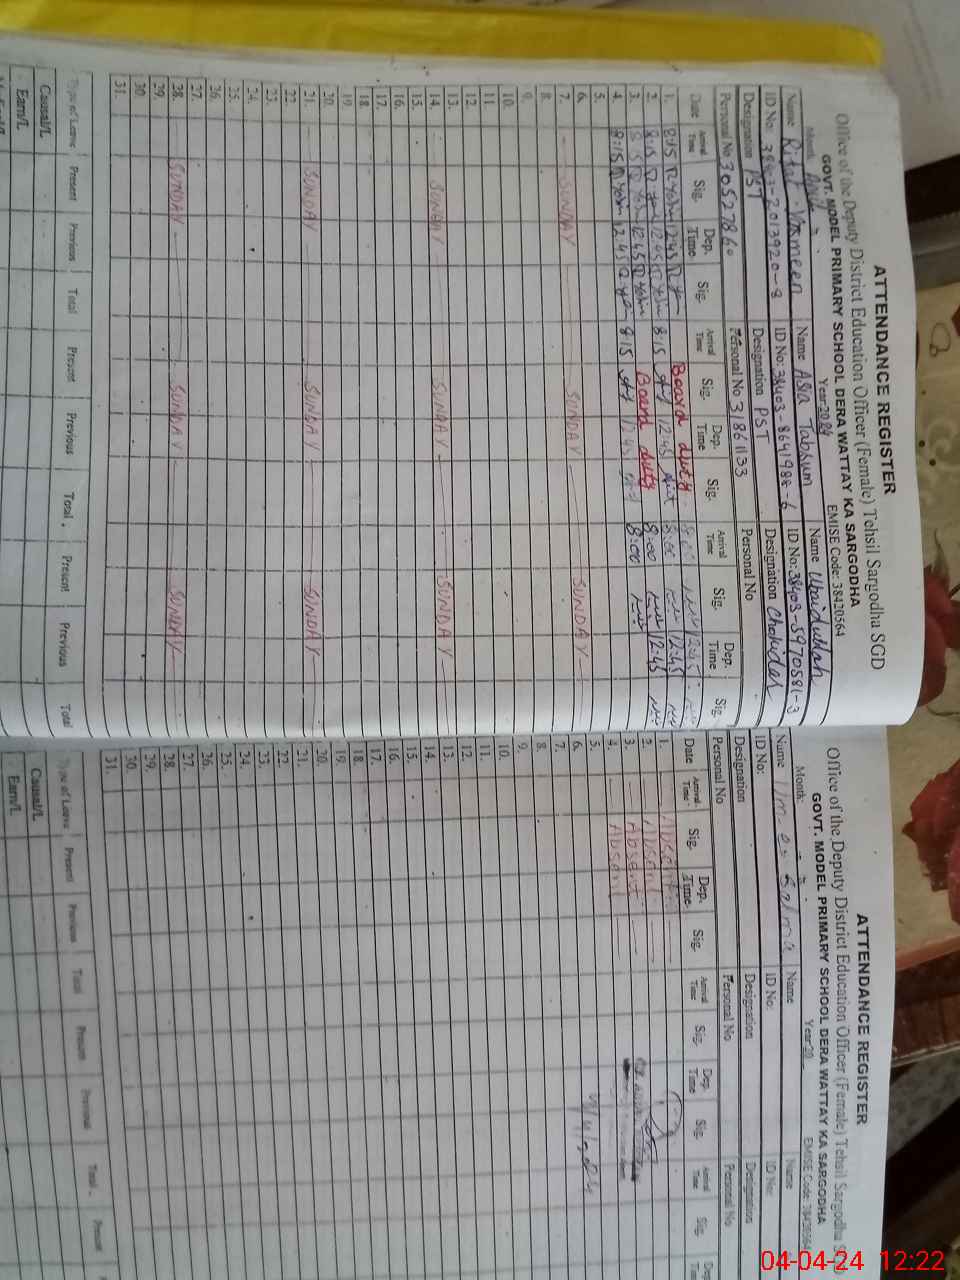 ATTENDANCE REGISTER
Office of the Deputy District Education Officer (Female) Tehsil Sargodha SGD
GOVT. MODEL PRIMARY SCHOOL DERA WATTAY KA SARGODHA
Month: April Year 2024 EMISE Code: 38420564
Name Name Asia Tabsum Name Ubaidullah
ID No: 38403-2013920-8 ID No: 38403-8641988-6 ID No: 38403-5970581-3
Designation PST Designation PST Designation Chokidar
Personal No 30527860 Personal No 31861133 Personal No
Date Arrival Time Sig. Dep. Time Sig. Arrival Time Sig. Dep. Time Sig. Arrival Time Sig. Dep. Time Sig.
1. 8:15 12:45 Board duty 12:45
2. 8:15 12:45 8:15 12:45 8:00 12:45
3. 12:45 Board duty 8:00 12:45
4. 8:15 12:45 8:15 12:45 8:00
5.
6.
7. SUNDAY SUNDAY SUNDAY
8.
9.
10.
11.
12.
13.
14. SUNDAY SUNDAY SUNDAY
15.
16.
17.
18.
19.
20.
21. SUNDAY SUNDAY SUNDAY
22.
23.
24.
25.
26.
27.
28. SUNDAY SUNDAY SUNDAY
29.
30.
31.
Type of Leave Present Previous Total Present Previous Total Present Previous Total
Causal/L
Earn/L
ATTENDANCE REGISTER
Office of the Deputy District Education Officer (Female) Tehsil Sargodha
GOVT. MODEL PRIMARY SCHOOL DERA WATTAY KA SARGODHA
Month: Year 20 EMISE Code: 38420564
Name Salma Name Name
ID No: ID No: ID No:
Designation Designation Designation
Personal No Personal No Personal No
Date Arrival Time Sig. Dep. Time Sig. Arrival Time Sig. Dep. Time Sig. Arrival Time Sig.
1. Absent
2. Absent
3. Absent
4. Absent
5.
6.
7.
8.
9.
10.
11.
12.
13.
14.
15.
16.
17.
18.
19.
20.
21.
22.
23.
24.
25.
26.
27.
28.
29.
30.
31.
Type of Leave Present Previous Total Present Previous Total Present
Causal/L
Earn/L
04-04-24 12:22